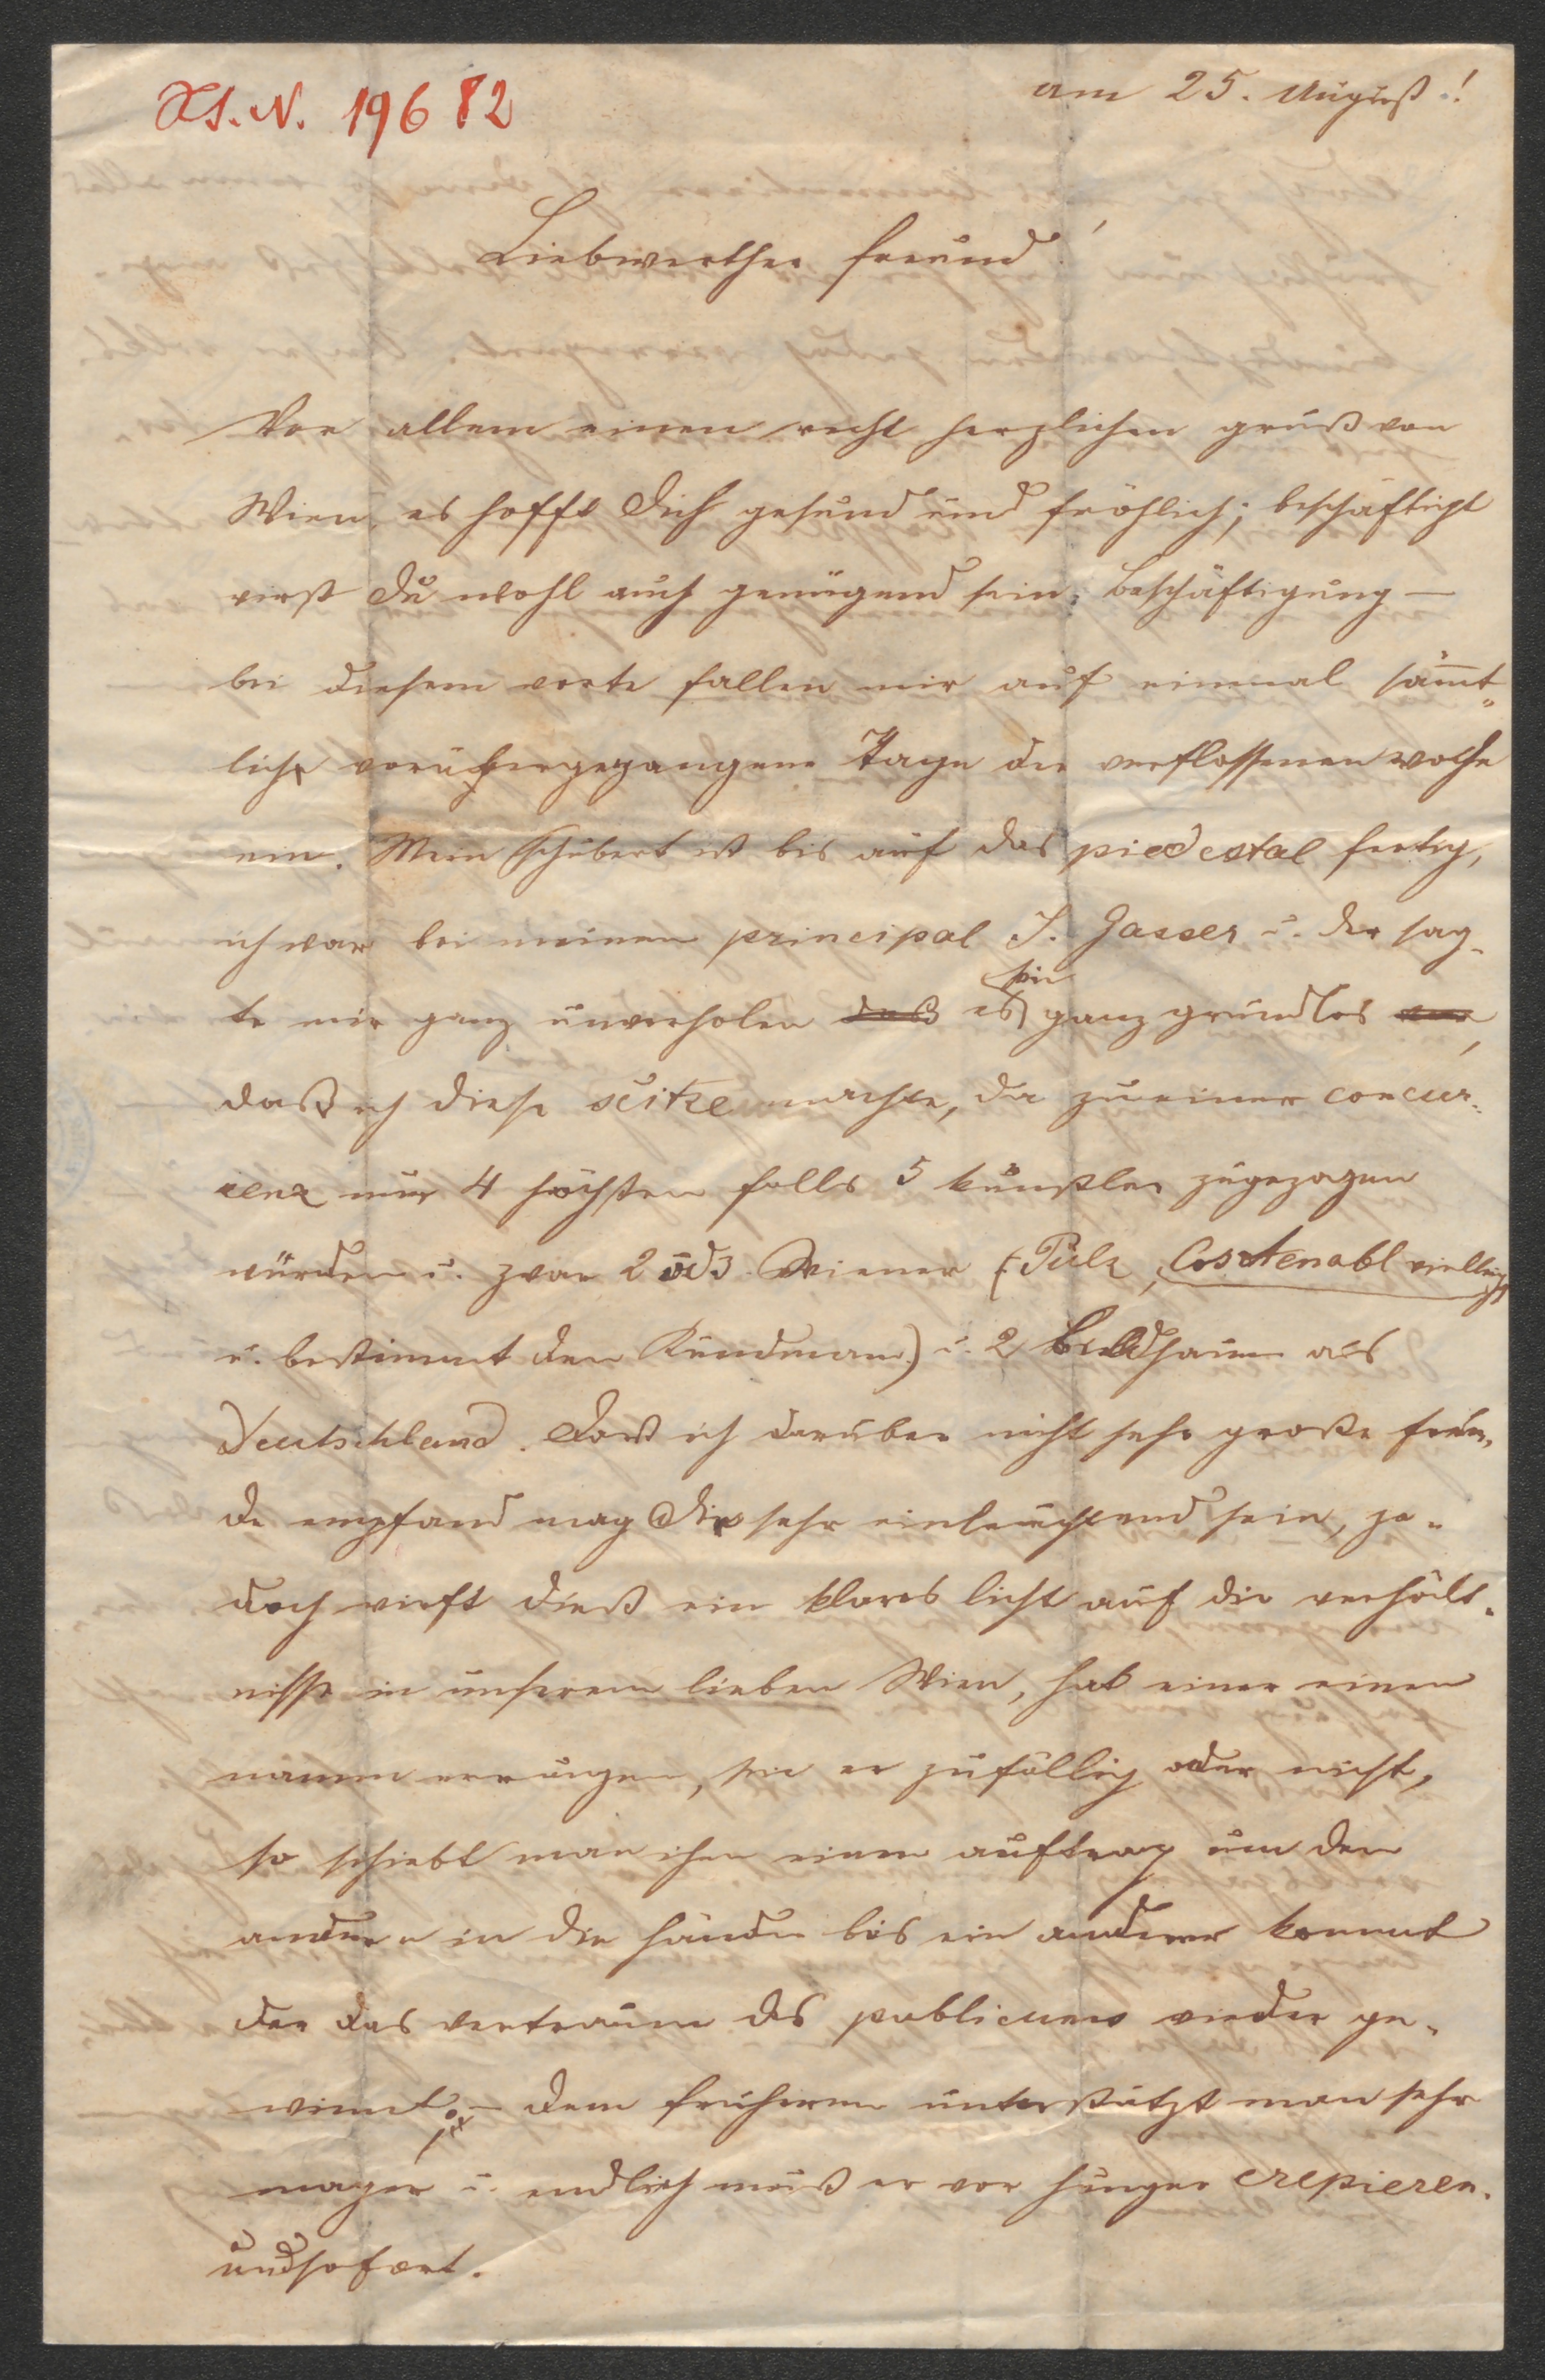 I.N. 19682
am 25. August.!
Liebwerther freund!
Vor allem einen recht herzlichen gruß von
Wien, es hofft dich gesund und fröhlich; beschäftigt
wirst du wohl auch genügend sein; beschäftigung —
bei diesem worte fallen mir auf einmal sämt„
liche vorübergegangene Tage der verflossenen woche
ein. Mein Schubert ist bis auf das piedestal fertig,
ich war bei meinem principal J. Gasser u. der sag„
te mir ganz unverholen daß es sei ganz grundlos war,
daß ich diese scitze machte, da zu einer concur„
renz nur 4 höchsten falls 5 künstler zugezogen
würden u. zwar 2 od 3 Wiener (Pilz, Costenobl vielleicht
u. bestimmt den Kundmann) u. 2 Bildhauer aus
Deutschland. Daß ich darüber nicht sehr große freu„
de empfand mag dir sehr einleuchtend sein, je„
doch wirft dieß ein klares licht auf die verhält„
nisse in unserem lieben Wien, hat einer einen
namen errungen, sei er zufällig oder nicht,
so schiebt man ihm einen auftrag um den
andern in die hände bis ein anderer kommt
der das vertrauen des publicums wieder ge„
winnt; – dem früheren unterstützt man sehr
mager u. endlich muß er vor hunger crepieren.
undsofort.